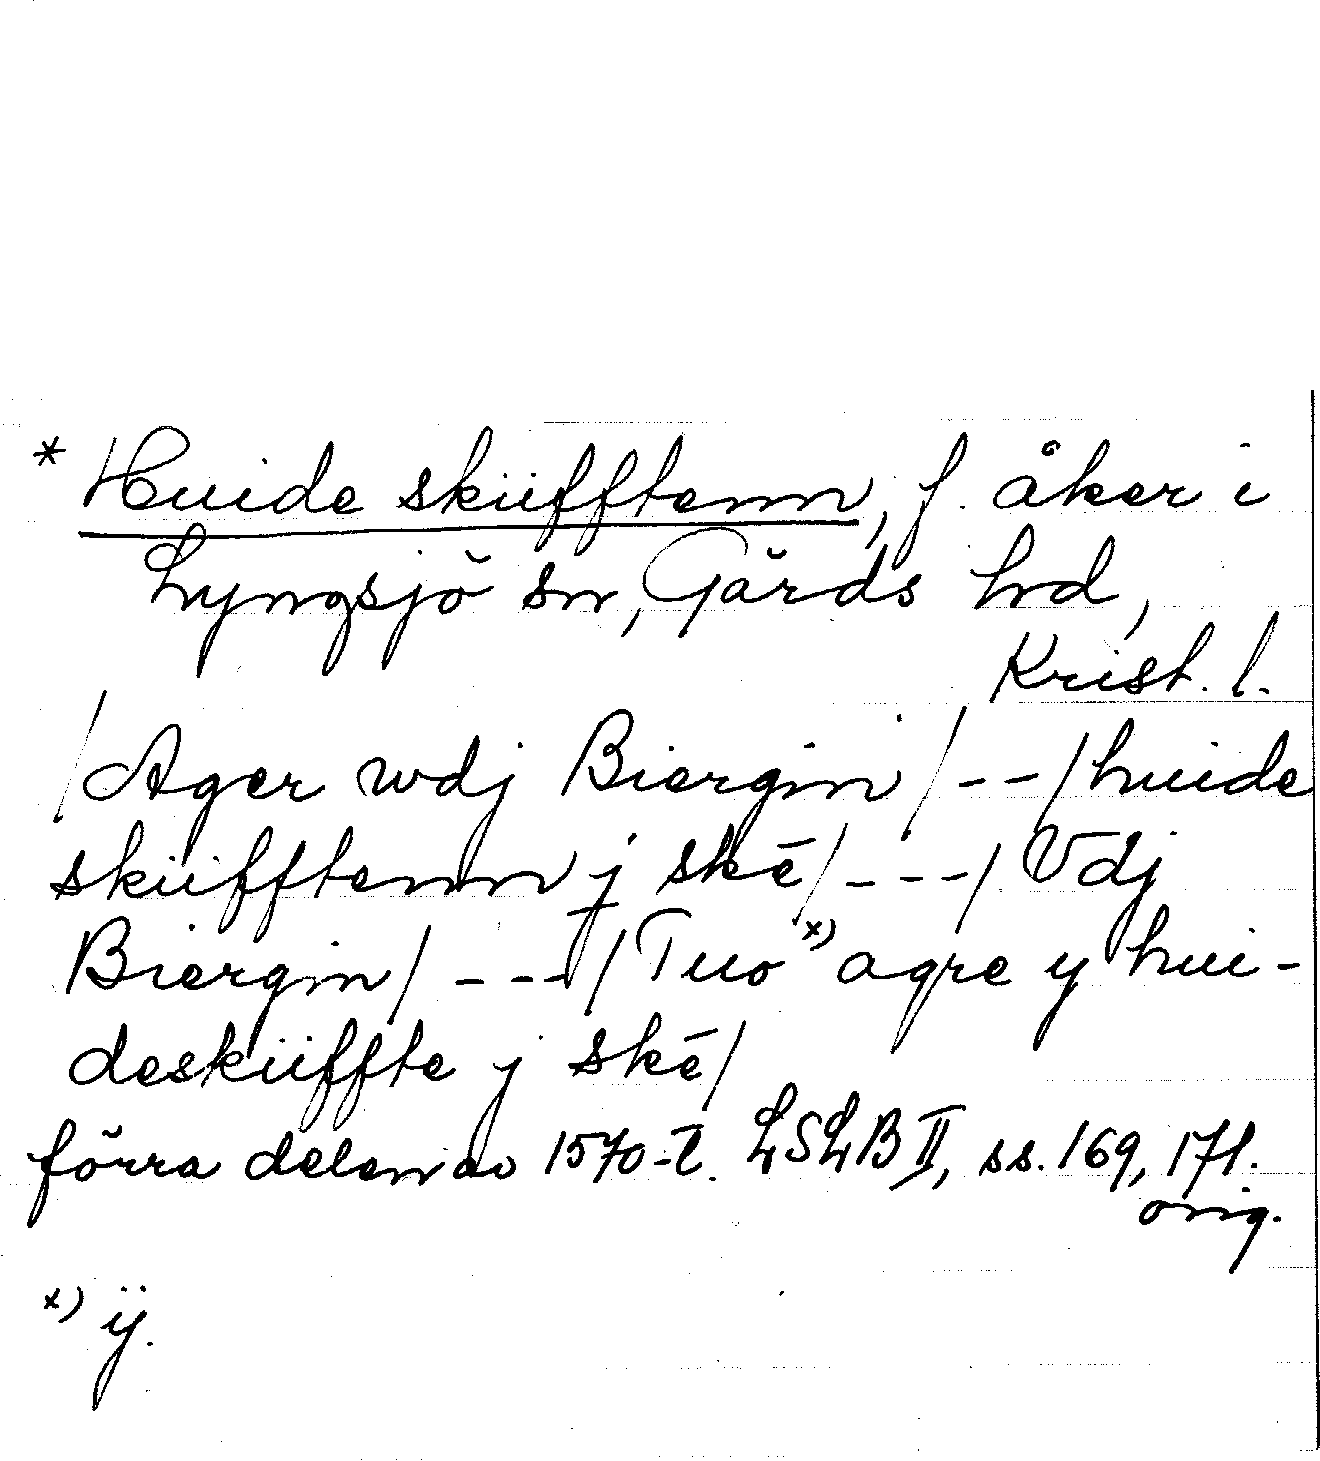 * Huide skiifftenn, f. åker i
Lyngsjö sn, Gärds hd,
Krist. l.
/Ager wdj Biergin/--/huide
skiifftenn j skē/---/ Vdj
Biergin/---/Tuo x) agre y hui-
deskiiffte j skē/
förra delen av 1570-t. LSLB II, ss. 169, 171.
orig.
x) ÿ.